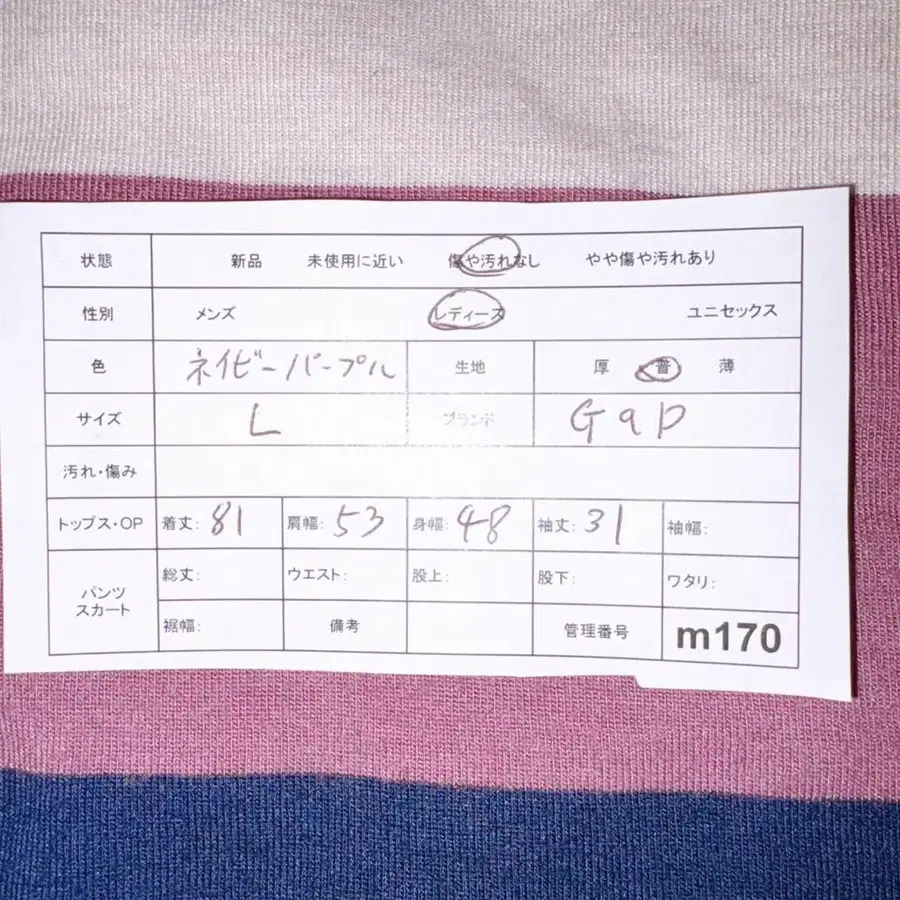 状態 新品 未使用に近い 傷や汚れなし やや傷や汚れあり
性別 メンズ レディース ユニセックス
色 ネイビーパープル 生地 厚 普 薄
サイズ L ブランド Gap
汚れ・傷み
トップス・OP 着丈: 81 肩幅: 53 身幅: 48 袖丈: 31 袖幅:
パンツ スカート 総丈: ウエスト: 股上: 股下: ワタリ:
裾幅: 備考 管理番号 m170